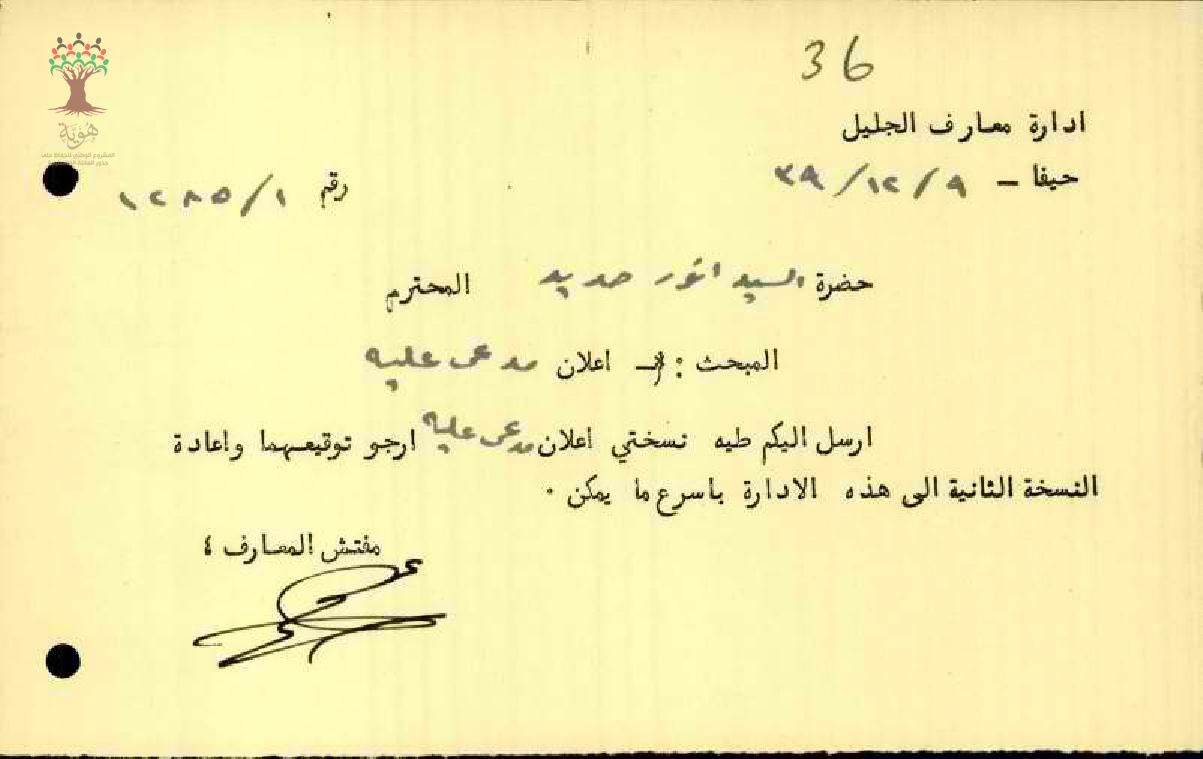 36
هوية
المشروع الوطني للحفاظ على
ادارة معارف الجليل
حيفا – ٩/١٢/٣٩
رقم ١٢٨٥/١
حضرة السيد انور حديد المحترم
المبحث : – اعلان مدعى عليه
ارسل اليكم طيه نسختي اعلان مدعى عليه ارجو توقيعهما واعادة
النسخة الثانية الى هذه الادارة باسرع ما يمكن ٠
مفتش المعارف ؛